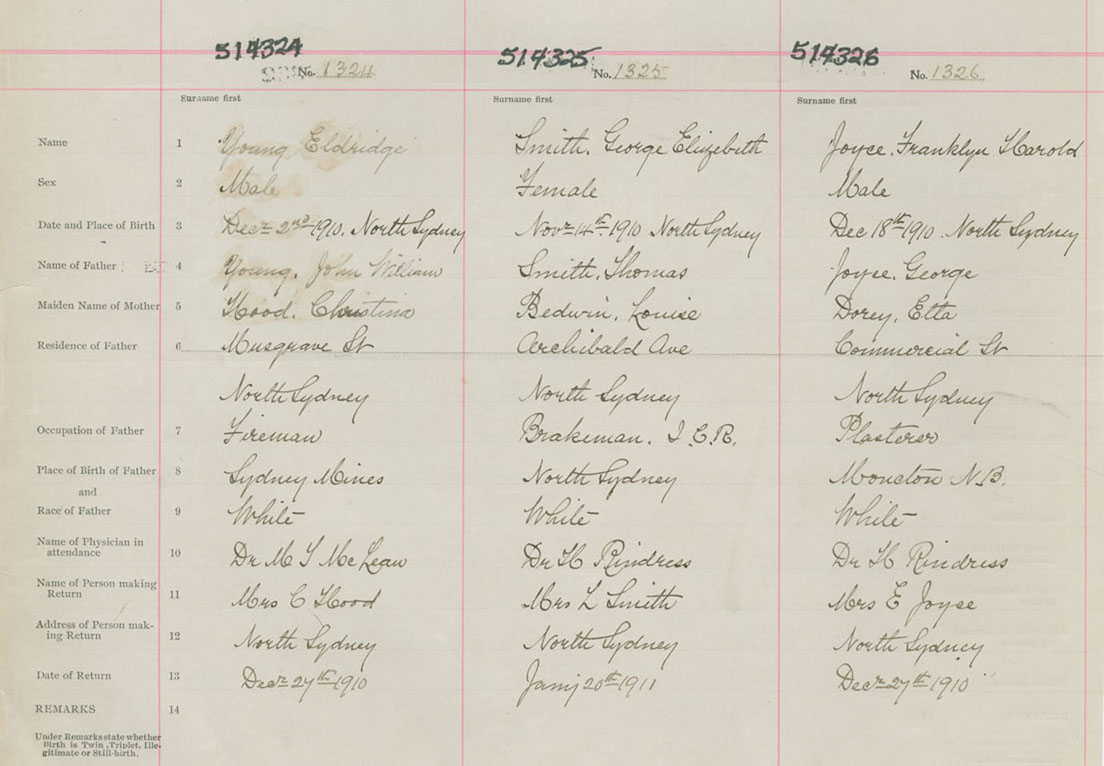 514324 514325 514326
No. 1324 No. 1325 No. 1326
Surname first Surname first Surname first
Name 1 Young Eldridge Smith. George Elizebith Joyce. Franklyn Harold
Sex 2 Male Female Male
Date and Place of Birth 3 Decr 2nd 1910. North Sydney Novr 14th 1910 North Sydney Dec 18th 1910. North Sydney
Name of Father 4 Young. John William Smith. Thomas Joyce. George
Maiden Name of Mother 5 Hood. Christina Bedwin. Louise Dorey, Etta
Residence of Father 6 Musgrave St Archibald Ave Commercial St
North Sydney North Sydney North Sydney
Occupation of Father 7 Fireman Brakeman. I.C.R. Plasterer
Place of Birth of Father 8 Sydney Mines North Sydney Moncton N.B.
and
Race of Father 9 White White White
Name of Physician in
attendance 10 Dr M S McLean Dr H Rindress Dr H Rindress
Name of Person making
Return 11 Mrs C Hood Mrs L Smith Mrs E Joyce
Address of Person mak-
ing Return 12 North Sydney North Sydney North Sydney
Date of Return 13 Decr 27th 1910 Jany 20th 1911 Decr 27th 1910
REMARKS 14
Under Remarks state whether
Birth is Twin, Triplet, Ille-
gitimate or Still-birth.